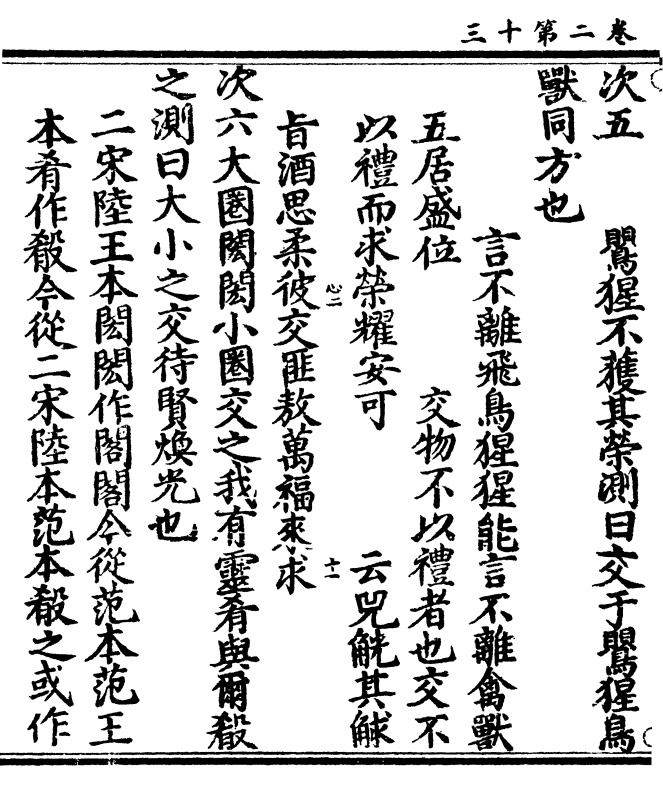 卷二第十三
次五　鸎猩不獲其榮測曰交于鸎猩鳥
獸同方也
言不離飛鳥猩猩能言不離禽獸
五居盛位　交物不以禮者也交不
以禮而求榮耀安可　云兕觥其觩
心二
十一
旨酒思柔彼交匪敖萬福來求
次六大圈閎閎小圈交之我有靈肴與爾殽
之測曰大小之交待賢煥光也
二宋陸王本閎閎作閣閣今從范本范王
本肴作殽今從二宋陸本范本殽之或作